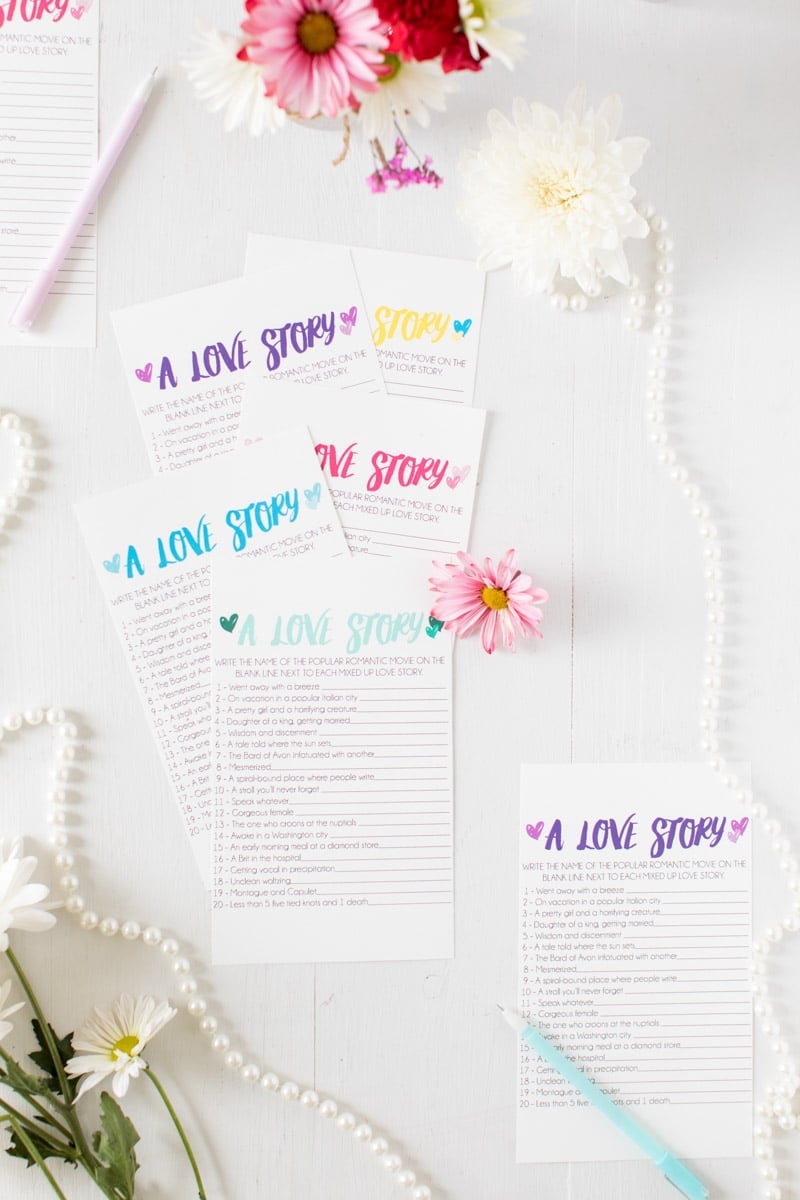 STORY
ROMANTIC MOVIE ON THE
D UP LOVE STORY.
other
write
store
death
A LOVE STORY
WRITE THE NAME OF THE POPULAR ROMANTIC MOVIE ON THE
BLANK LINE NEXT TO EACH MIXED UP LOVE STORY.
1 - Went away with a breeze
2 - On vacation in a popular
3 - A pretty girl and a
4 - Daughter of a
STORY
ROMANTIC MOVIE ON THE
LOVE STORY.
LOVE STORY
POPULAR ROMANTIC MOVIE ON THE
EACH MIXED UP LOVE STORY.
Italian city
creature
A LOVE STORY
WRITE THE NAME OF THE POPULAR ROMANTIC MOVIE ON THE
BLANK LINE NEXT TO EACH MIXED UP LOVE STORY.
1 - Went away with a breeze
2 - On vacation in a popu
3 - A pretty girl and a ho
4 - Daughter of a king
5 - Wisdom and discer
6 - A tale told where
7 - The Bard of Avon
8 - Mesmerized
9 - A spiral-bound
10 - A stroll you'll
11 - Speak what
12 - Gorgeous
13 - The one
14 - Awake
15 - An early
16 - A Brit
17 - Getting
18 - Uncl
19 - Mont
20 - Less
A LOVE STORY
WRITE THE NAME OF THE POPULAR ROMANTIC MOVIE ON THE
BLANK LINE NEXT TO EACH MIXED UP LOVE STORY.
1 - Went away with a breeze
2 - On vacation in a popular Italian city
3 - A pretty girl and a horrifying creature
4 - Daughter of a king, getting married
5 - Wisdom and discernment
6 - A tale told where the sun sets
7 - The Bard of Avon infatuated with another
8 - Mesmerized
9 - A spiral-bound place where people write
10 - A stroll you'll never forget
11 - Speak whatever
12 - Gorgeous female
13 - The one who croons at the nuptials
14 - Awake in a Washington city
15 - An early morning meal at a diamond store
16 - A Brit in the hospital
17 - Getting vocal in precipitation
18 - Unclean waltzing
19 - Montague and Capulet
20 - Less than 5 five tied knots and 1 death
A LOVE STORY
WRITE THE NAME OF THE POPULAR ROMANTIC MOVIE ON THE
BLANK LINE NEXT TO EACH MIXED UP LOVE STORY.
1 - Went away with a breeze
2 - On vacation in a popular Italian city
3 - A pretty girl and a horrifying creature
4 - Daughter of a king, getting married
5 - Wisdom and discernment
6 - A tale told where the sun sets
7 - The Bard of Avon infatuated with another
8 - Mesmerized
9 - A spiral-bound place where people write
10 - A stroll you'll never forget
11 - Speak whatever
12 - Gorgeous female
The one who croons at the nuptials
wake in a Washington city
15 - early morning meal at a diamond store
16 - A hospital
17 - Getting in precipitation
18 - Unclean
19 - Montague pulet
20 - Less than 5 five knots and 1 death